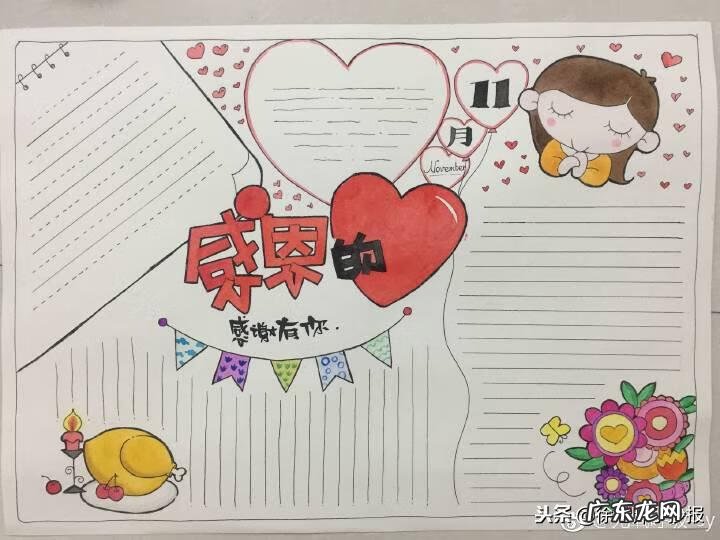 11
月
November
感恩的
感谢有你.
广东龙网